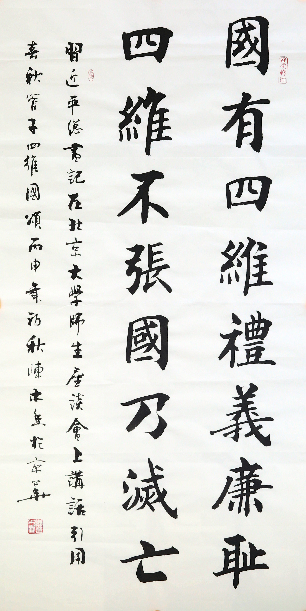 國有四維禮義廉恥
四維不張國乃滅亡
習近平總書記在北京大學師生座談會上講話引用
春秋管子四維國頌丙申年初秋陳
於京華